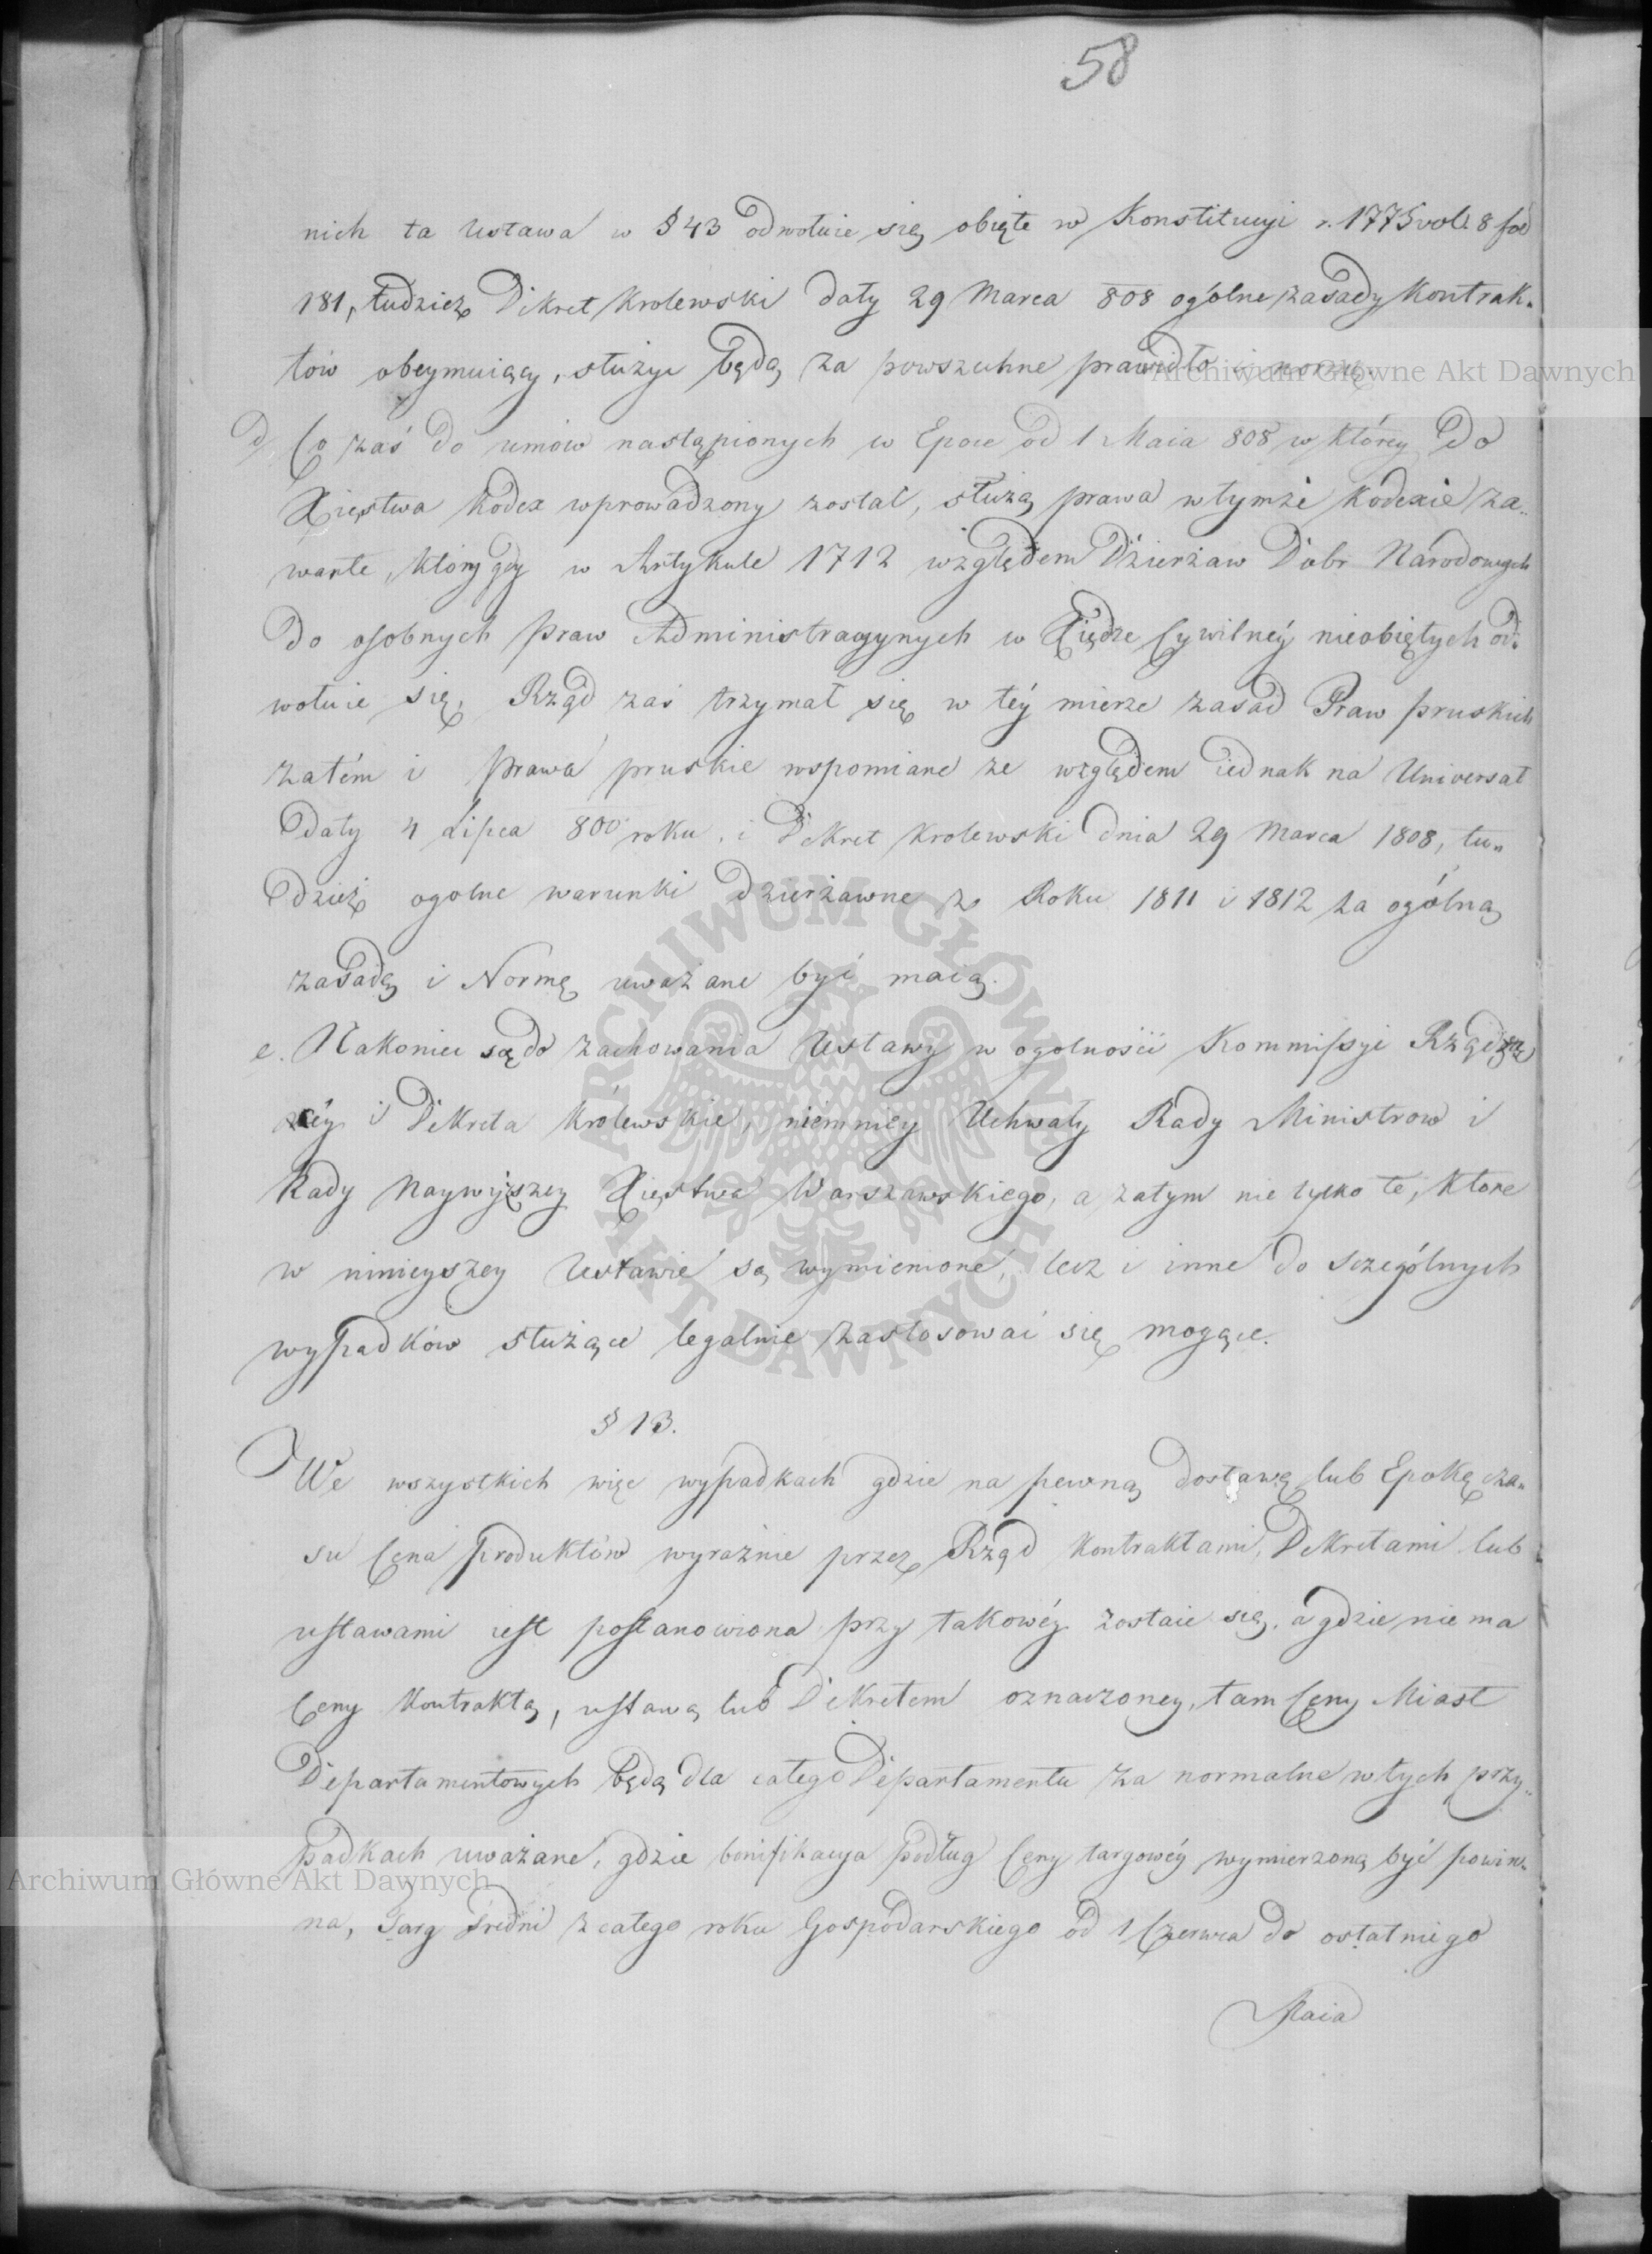 58
nich ta Ustawa w § 43 odwołuie się, obięte w Konstitucyi r. 1775 vol. 8 fol
181, tudzież Dekret Krolewski daty 29 Marca 808 ogólne zasady Kontrak-
tów obeymuiący, służyć będą za powszechne prawidło i normę.
d, Co zaś do umów nastąpionych w Epoce od 1 Maia 808 w którey do
Xięstwa Kodex wprowadzony został, służą prawa w tymże Kodexie za-
warte, który gdy w Artykule 1712 względem Dzierżaw Dobr Narodowych
do osobnych Praw Administracyynych w Xiędze Cywilnéy nieobiętych od-
wołuie się, Rząd zaś trzymał się w téy mierze zasad Praw pruskich
zatém i Prawa pruskie wspomiane ze względem iednak na Uniwersał
daty 4 Lipca 800 roku, i Dekret Krolewski dnia 29 Marca 1808, tu-
dzież ogolne warunki dzierżawne z Roku 1811 i 1812 za ogólną
zasadę i Normę uważane być maią.
e. Nakoniec są do zachowania Ustawy w ogolności Kommissyi Rządzą
céy i Dekreta Królewskie, niemniey Uchwały Rady Ministrow i
Rady Naywyższey Xięstwa Warszawskiego, a zatym nie tylko te, które
w ninieyszey Ustawie są wymienione, lecz i inne do sczególnych
wypadków służące legalnie zastosować się mogące.
§ 13.
We wszystkich więc wypadkach gdzie na pewną dostawę lub Epokę cza-
su Cena produktów wyraźnie przez Rząd Kontraktami, Dekretami lub
ustawami iest postanowiona przy takowéy zostaie się, a gdzie nie ma
Ceny Kontraktą, ustawą lub Dekretem oznaczoney, tam Ceny Miast
Departamentowych będą dla całego Departamentu za normalne w tych przy-
padkach uważane, gdzie bonifikacya podług Ceny targowéy wymierzoną być powin-
na, Targ średni z całego roku Gospodarskiego od 1 Czerwca do ostatniego
Maia
Archiwum Główne Akt Dawnych
ARCHIWUM GŁÓWNE AKT DAWNYCH
Archiwum Główne Akt Dawnych